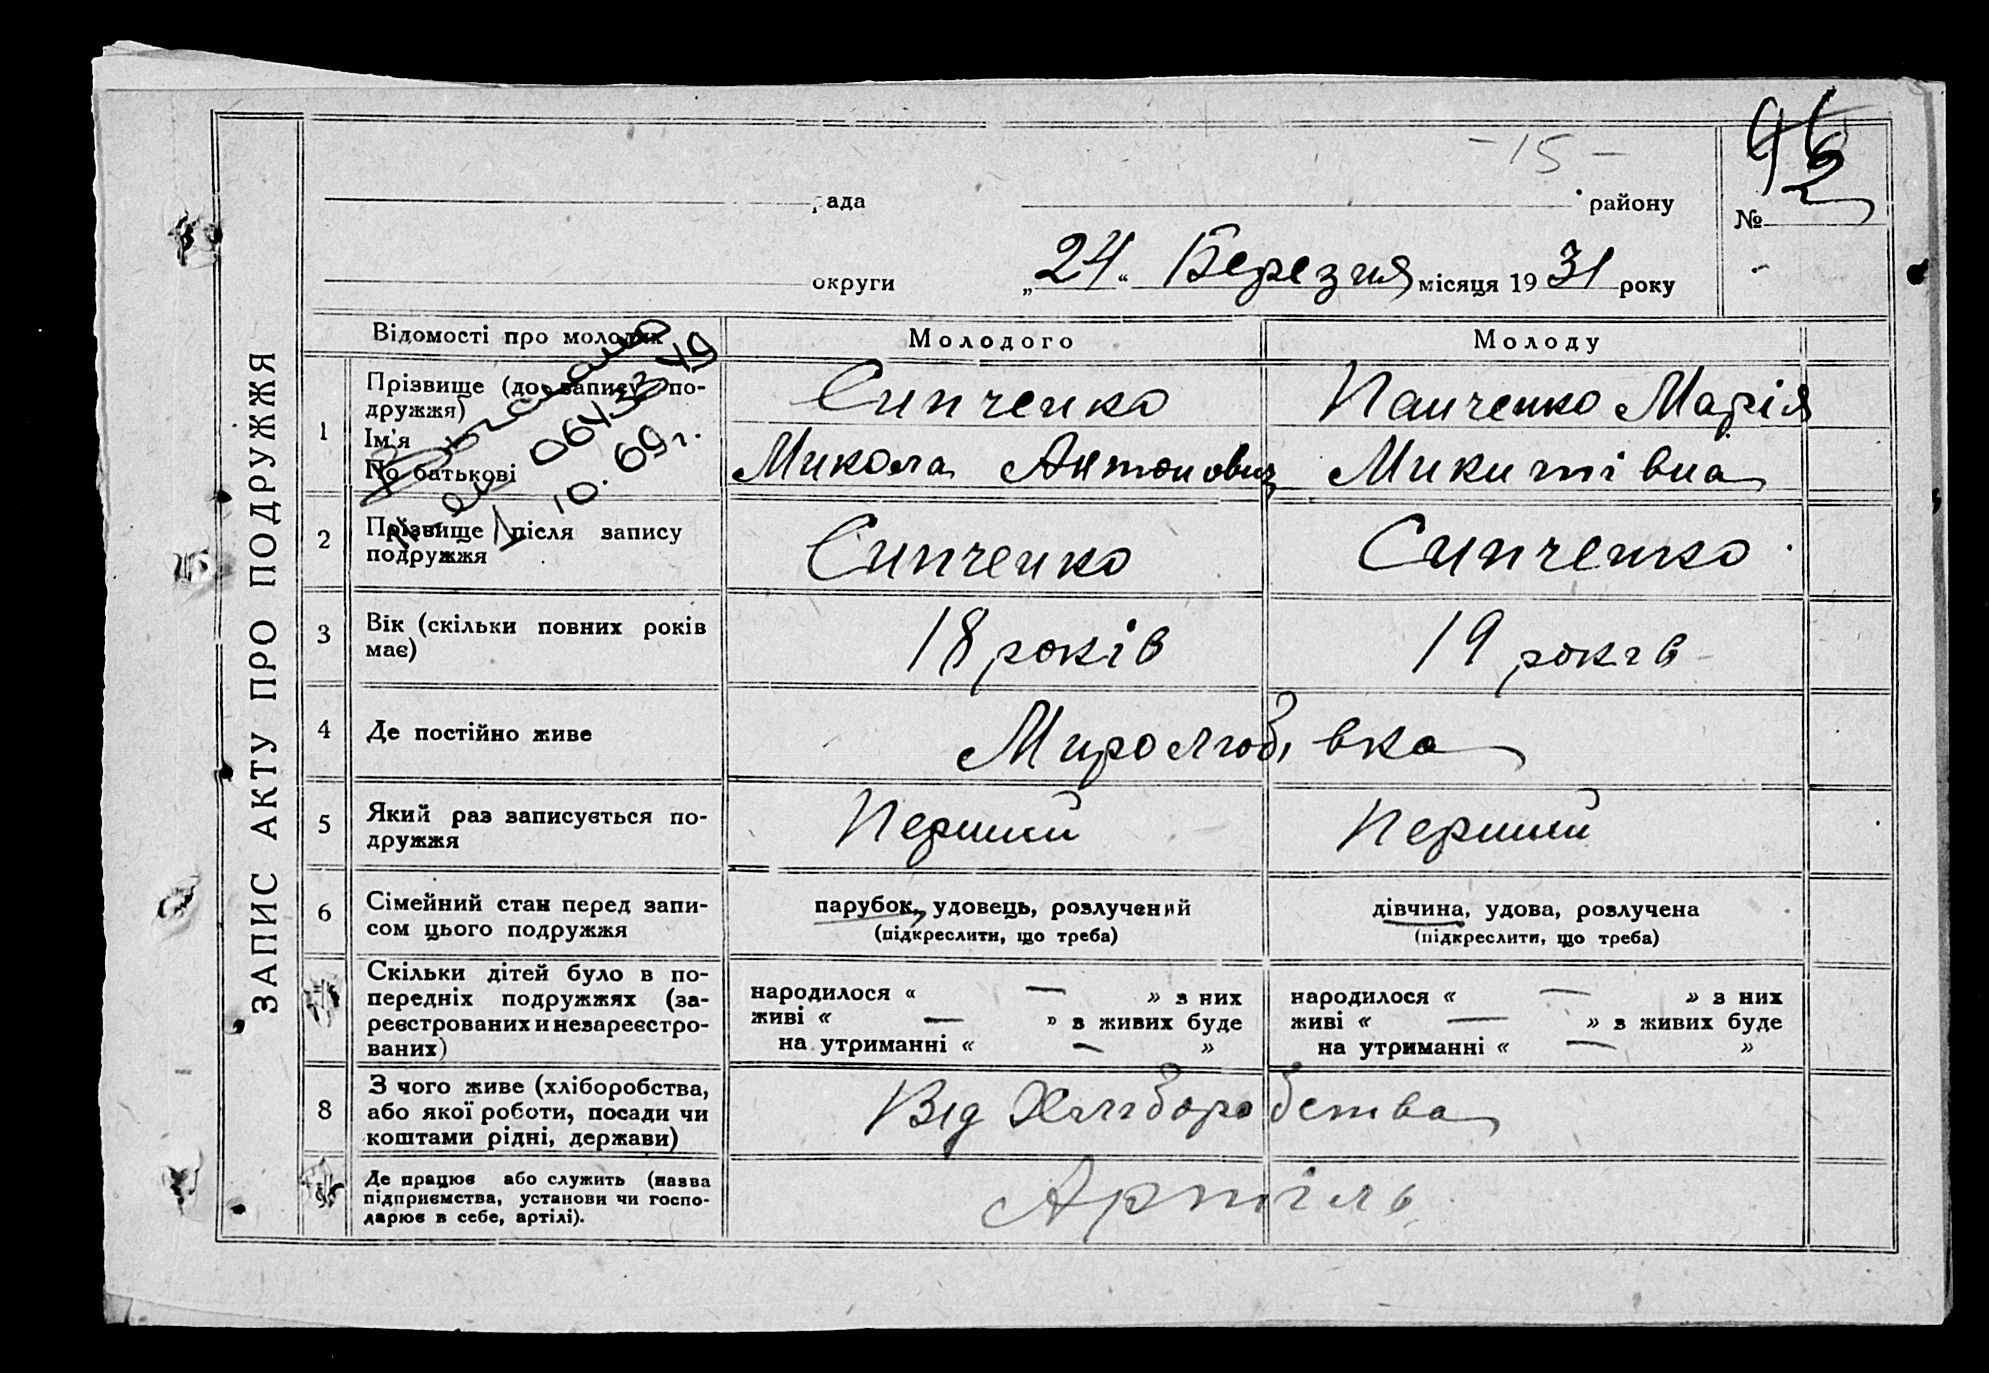 ЗАПИС АКТУ ПРО ПОДРУЖЖЯ
- 15 -
рада
району
№
округи
„24“ Березня місяця 1931 року
Відомості про молодих
Молодого
Молоду
1
Прізвище (до запису по-
дружжя)
Ім'я
По батькові
Синченко
Микола Антонович
Панченко Марія
Микитівна
06432 49
10. 69 г.
2
Прізвище після запису
подружжя
Синченко
Синченко
3
Вік (скільки повних років
має)
18 років
19 років
4
Де постійно живе
Миролюбівка
5
Який раз записується по-
дружжя
Перший
Перший
6
Сімейний стан перед запи-
сом цього подружжя
парубок, удовець, розлучений
(підкреслити, що треба)
дівчина, удова, розлучена
(підкреслити, що треба)
Скільки дітей було в по-
передніх подружжях (за-
реєстрованих и незареєстро-
ваних)
народилося « — » з них
живі « — » з живих буде
на утриманні « — »
народилося « — » з них
живі « — » з живих буде
на утриманні « — »
8
З чого живе (хліборобства,
або якої роботи, посади чи
коштами рідні, держави)
Від Хліборобства
Де працює або служить (назва
підприємства, установи чи госпо-
дарює в себе, артілі).
Артіль